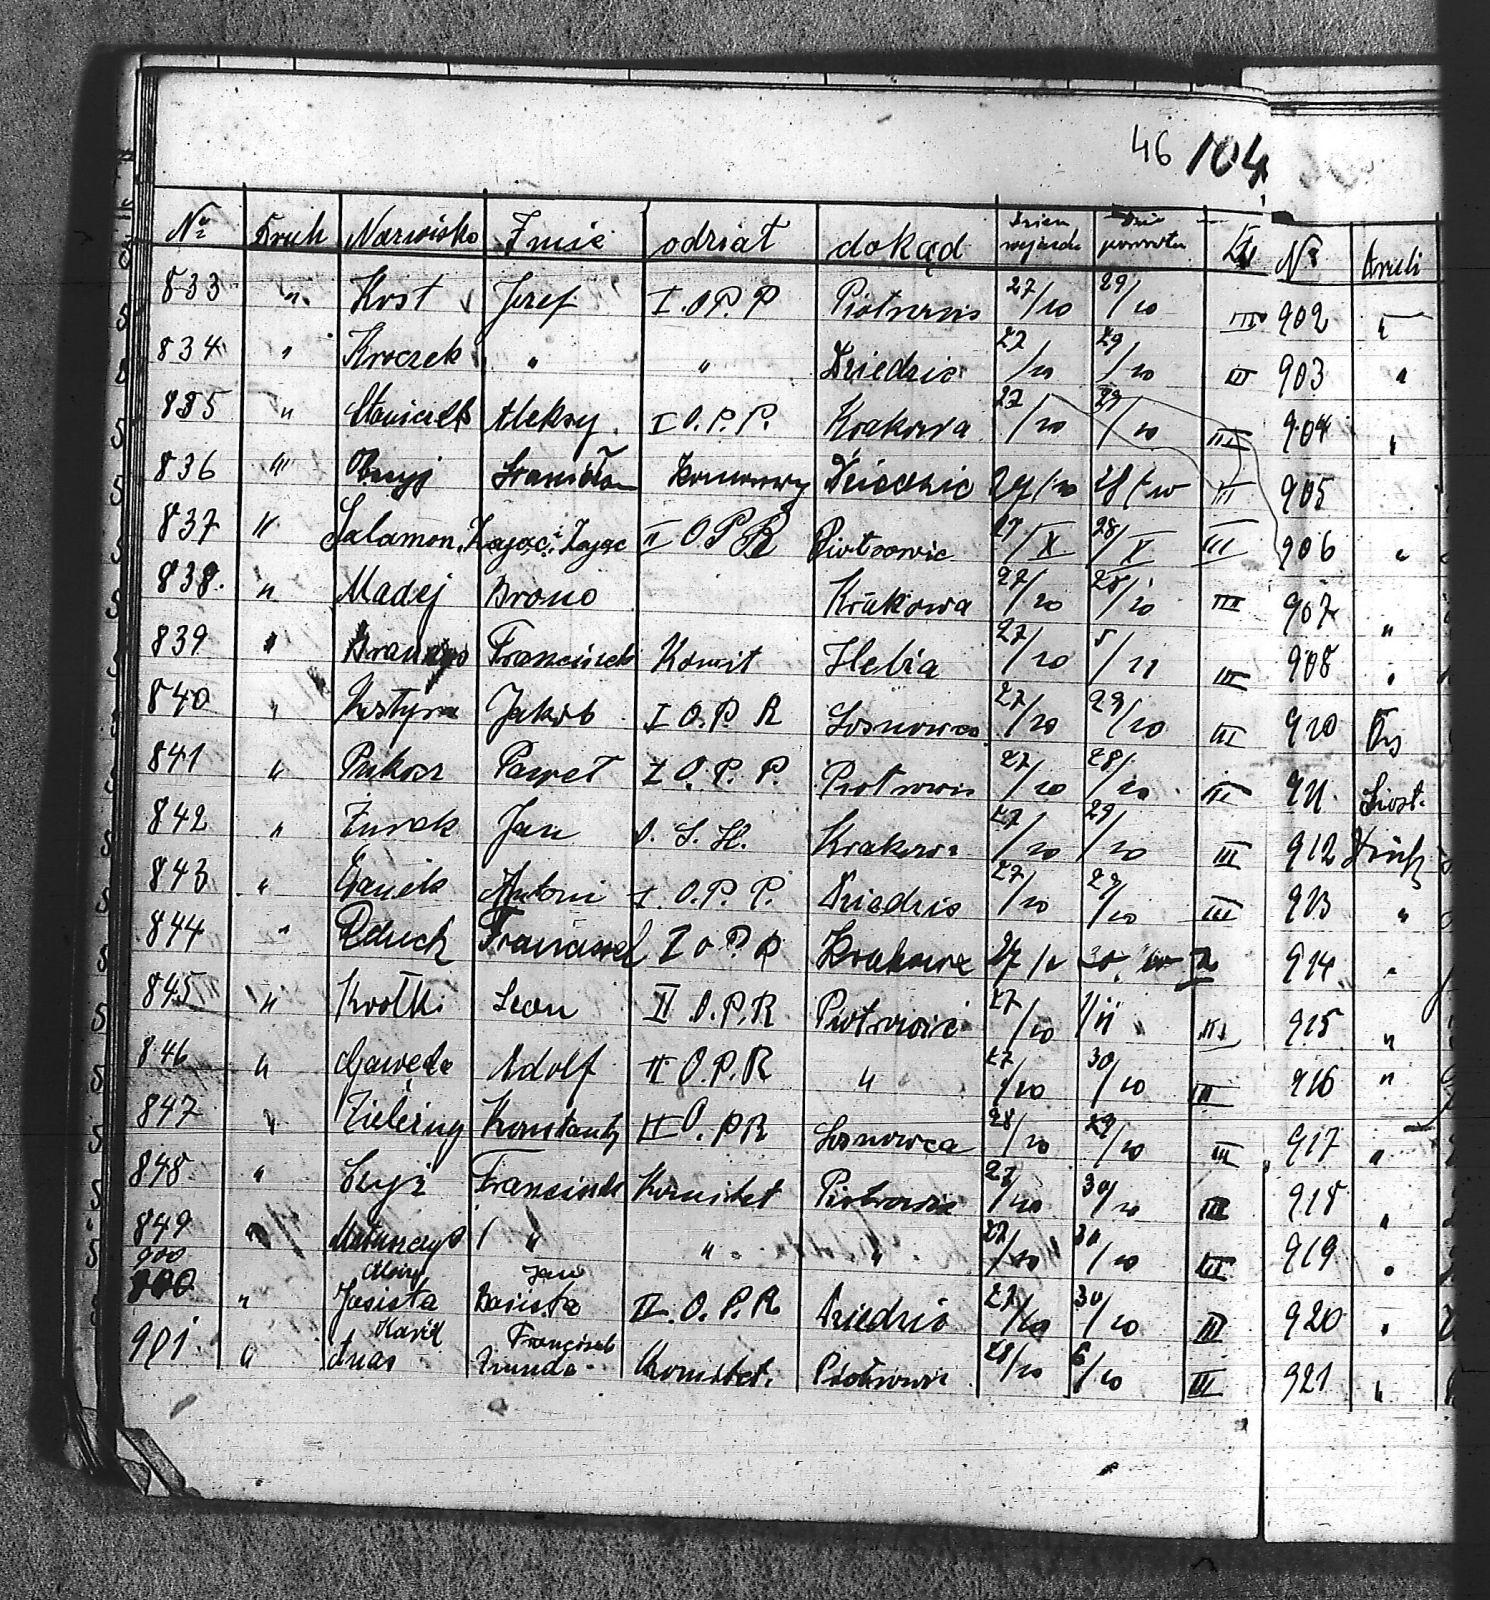 46 104
№ Druh Nazwisko Imię odział dokąd Dzień wyjazdu Dnia powrotu Kl № Druh
833 " Kost Jozef I. O.P.P Piotrowic 27/10 29/10 III 902 "
834 " Kroczek " " Dziedzic 27/10 29/10 III 903 "
835 " Aleksy I O.P.P. Krakowa 27/10 29/10 III 904 "
836 " Stanisław Dziedzic 27/10 28/10 III 905
837 " Salamon, Zając II O.P.R Piotrowic 27/X 28/X III 906 "
838. " Madej Bruno Krakowa 27/10 28/10 III 907 "
839 " Franciszek Komit Hebia 27/10 5/11 III 908 "
840 " Kustyra Jakób I O.P.R Sosnowca 27/10 29/10 III 910 Ks
841 " Paweł I O.P.P. Piotrowic 27/10 28/10 III 911. Siost.
842 " Żurek Jan Krakowa 27/10 29/10 III 912 Druh
843 " Antoni I. O.P.P. Dziedzic 27/10 29/10 III 913 "
844 " I O P P Krakowa 27/10 914 "
845 " Krotki Leon II O.P.R Piotrowic 27/10 1/11 III 915 "
846 " Gawęda Adolf II O.P.R " 27/10 30/10 III 916 "
847 " Konstanty II O.P.R Sosnowca 28/10 29/10 III 917 "
848 " Czyż Franciszek Komitet Piotrowic 27/10 30/10 III 918 "
849 " Matuszczyk " " " 27/10 30/10 III 919 "
900 Jan
" Jasista Basista II. O.P.R Dziedzic 27/10 30/10 III 920 "
Franciszek
901 " Komitet. Piotrowic 28/10 6/10 III 921 "